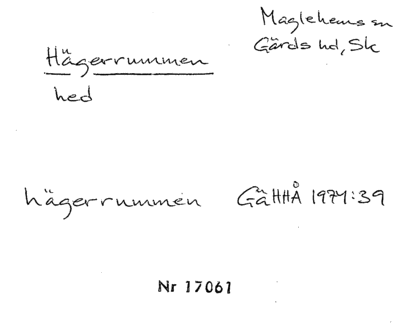 Maglehems sn
Gärds hd, Sk
Hägerrummen
hed
hägerrummen GäHHÅ 1974:39
Nr 17061